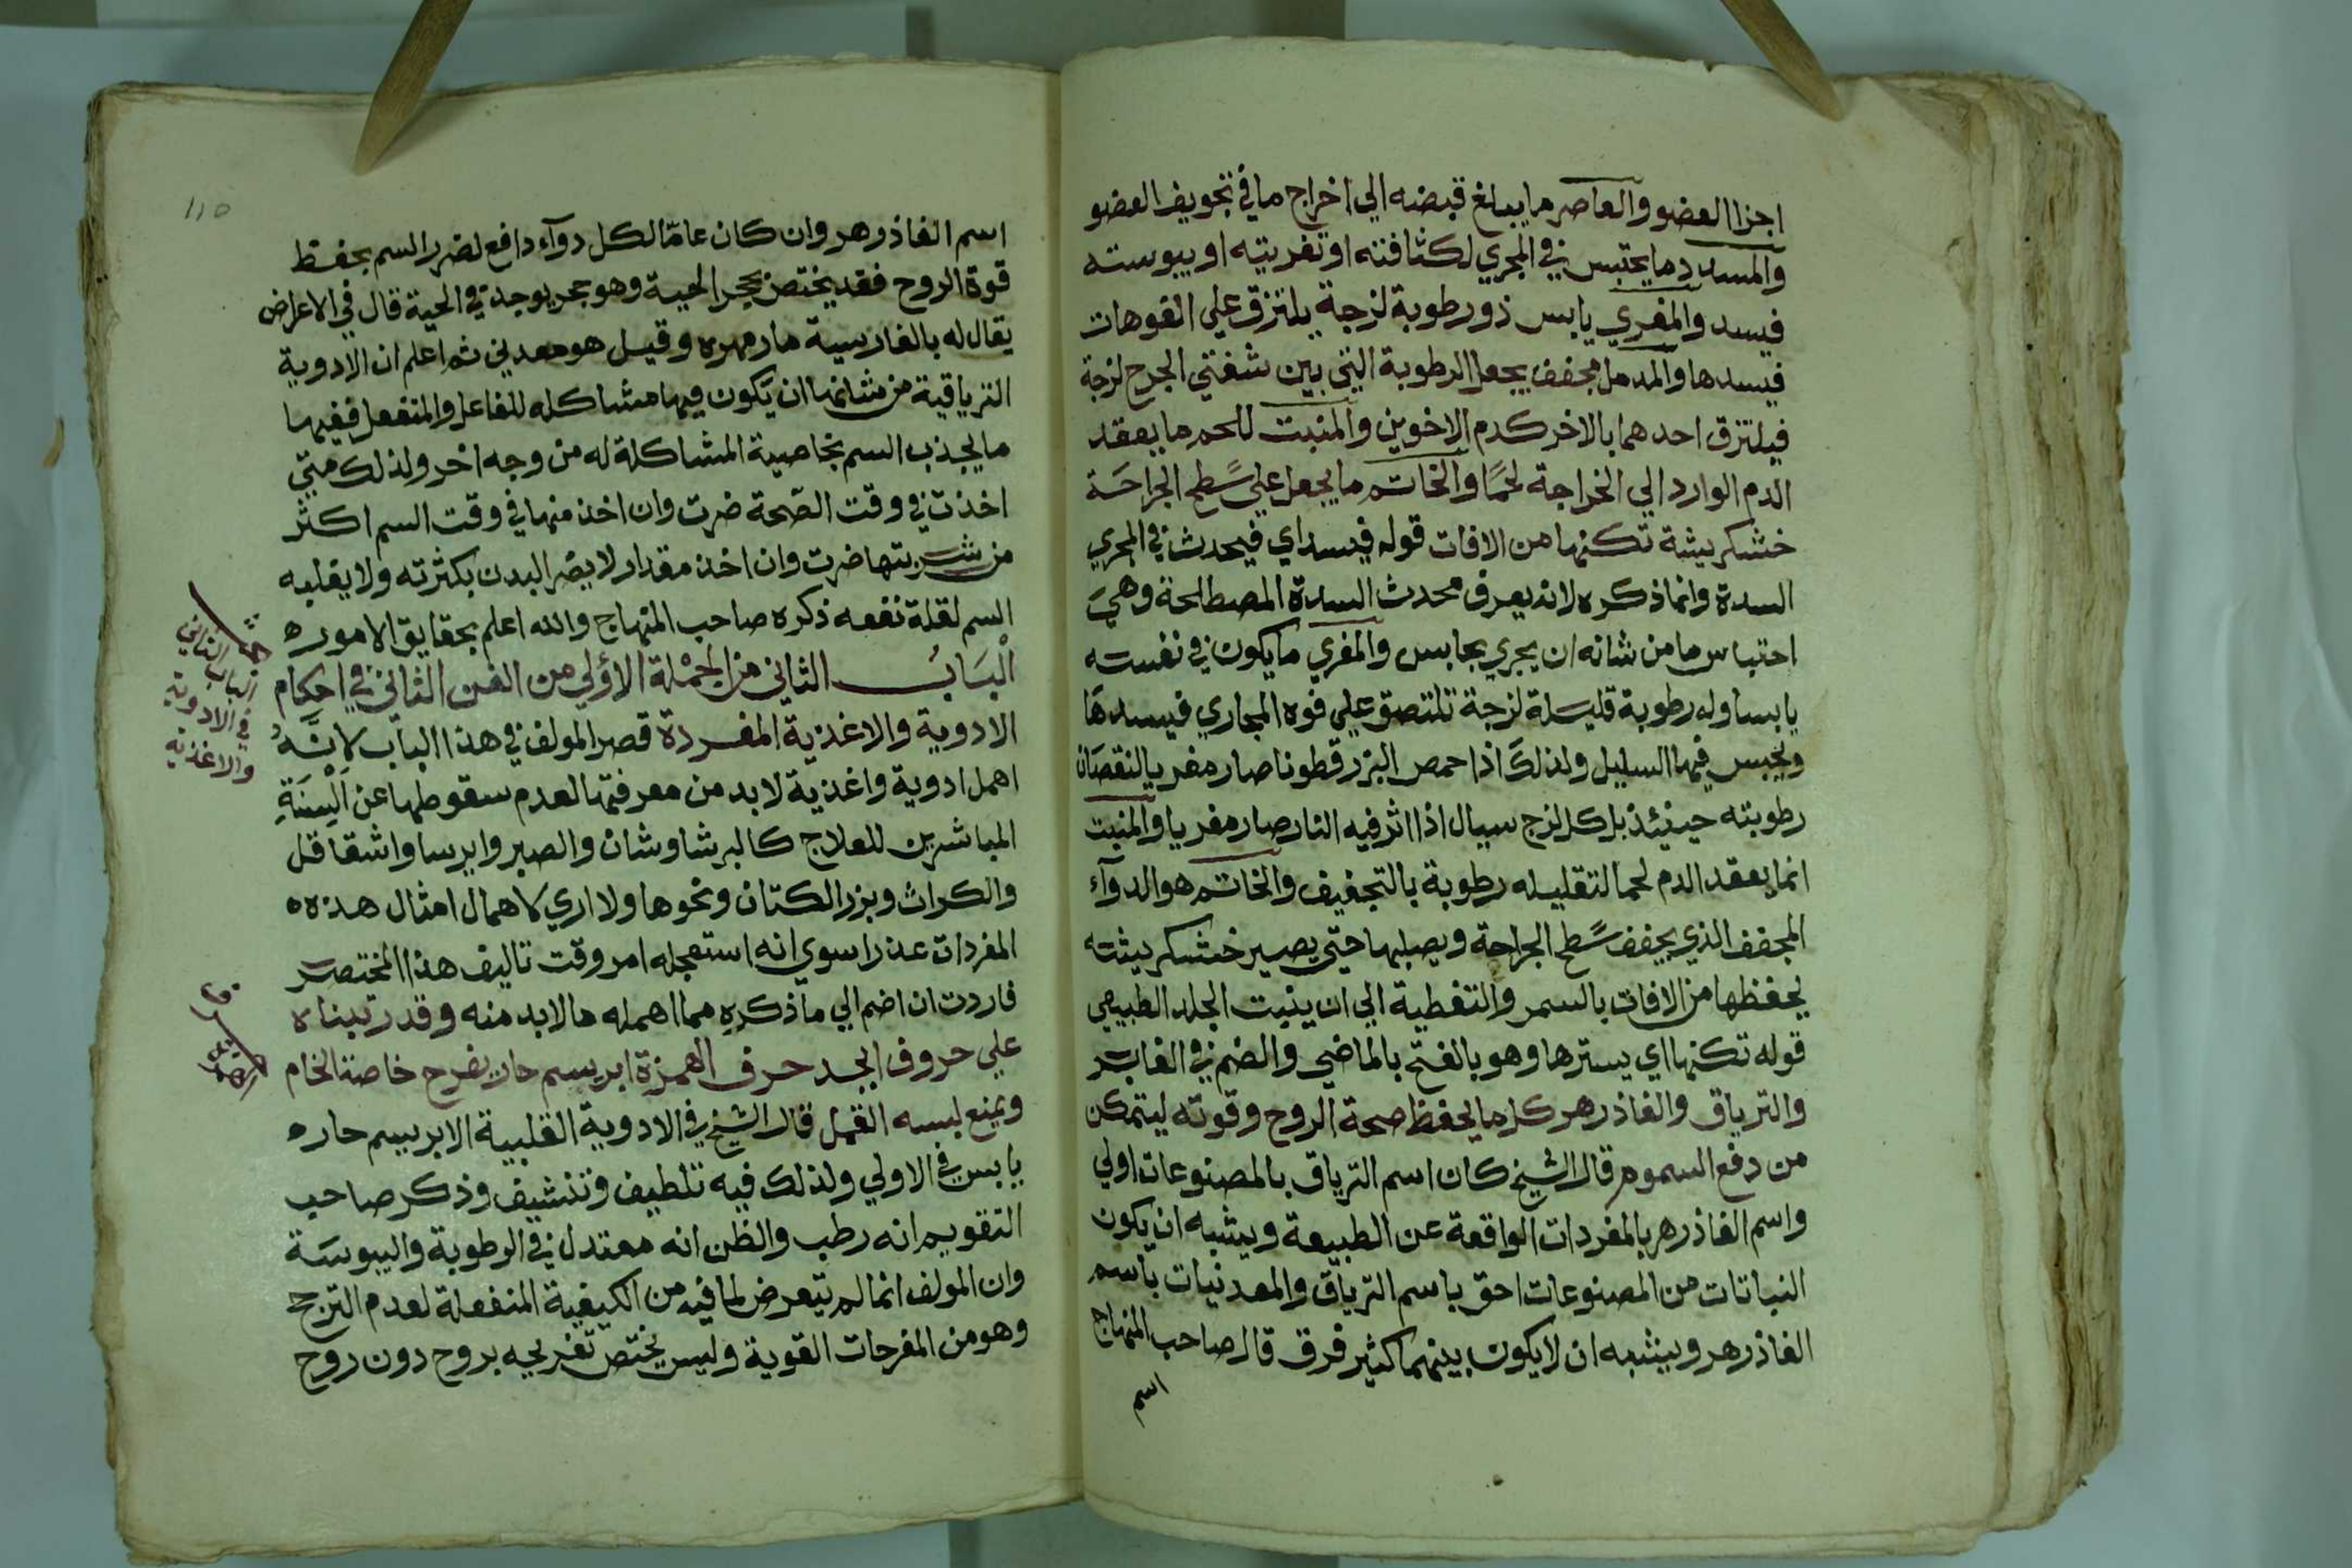 اجزا العضو والعاصر ما يبلغ قبضه الي اخراج ما في تجويف العضو
والمسدد ما يحتبس في المجري لكثافته او تغريته او يبوسته
فيسد والمغري يابس ذو رطوبة لزجة يلتزق علي الفوهات
فيسدها والمدمل مجفف يجعل الرطوبة التي بين شفتي الجرح لزجة
فيلتزق احدهما بالاخر كدم الاخوين والمنبت للحم ما يعقد
الدم الوارد الي الخراجة لحمًا والخاتم ما يجعل علي سطح الجراحة
خشكريشة تكنها من الافات قوله فيسد اي فيحدث في المجري
السدة وانما ذكره لانه يعرف محدث السدة المصطلحة وهي
احتباس ما من شانه ان يجري بحابس والمغري ما يكون في نفسه
يابسا وله رطوبة قليلة لزجة تلتصق علي فوه المجاري فيسدها
ويحبس فيها السايل ولذلك اذا حمص البزرقطونا صار مغريا لنقصان
رطوبته حينئذ بل كل لزج سيال اذا اثر فيه النار صار مغريا والمنبت
انما يعقد الدم لحما لتقليله رطوبة بالتجفيف والخاتم هو الدوآء
المجفف الذي يجفف سطح الجراحة ويصلبها حتي يصير خشكريشته
يحفظها من الافات بالستر والتغطية الي ان ينبت الجلد الطبيعي
قوله تكنها اي يسترها وهو بالفتح بالماضي والضم في الغابر
والترياق والفاذزهر كل ما يحفظ صحة الروح وقوته ليتمكن
من دفع السموم قال الشيخ كان اسم الترياق بالمصنوعات اولي
واسم الفاذزهر بالمفردات الواقعة عن الطبيعة ويشبه ان يكون
النباتات من المصنوعات احق باسم الترياق والمعدنيات باسم
الفاذزهر ويشبه ان لا يكون بينهما كثير فرق قال صاحب المنهاج
اسم
١١٥
اسم الفاذزهر وان كان عامّا لكل دوآء دافع لضرر السم بحفظ
قوة الروح فقد يختص بحجر الحية وهو حجر يوجد في الحية قال في الاعراض
يقال له بالفارسية مارمهره وقيل هو معدني ثم اعلم ان الادوية
الترياقية من شانها ان يكون فيها مشاكله للفاعل والمنفعل ففيها
ما يجذب السم بخاصية المشاكلة له من وجه اخر ولذلك متي
اخذت في وقت الصّحة ضرت وان اخذ منها في وقت السم اكثر
من شربتها ضرت وان اخذ مقدار لا يضر البدن بكثرته ولا يغلبه
السم لقلة نفعه ذكره صاحب المنهاج والله اعلم بحقايق الامور ه
الْبَابُ الثاني من الجمْلة الاولي من الفن الثاني في احكام
الادوية والاغذية المفردة قصر المولف في هذا الباب لانَّهُ
اهمل ادوية واغذية لا بد من معرفتها لعدم سقوطها عن اَلْسِنَةِ
المباشرين للعلاج كالبرشاوشان والصبر وايرسا واشقاقل
والكراث وبزر الكتان ونحوها ولا اري لاهمال امثال هذه ه
المفردات عذرا سوي انه استعجله امر وقت تاليف هذا المختصر
فاردت ان اضم الي ما ذكره مما اهمله ما لا بد منه وقد رتبناه
علي حروف ابجد حرف الهمزة ابريسم حار يفرح خاصة الخام
ويمنع لبسه القمل قال الشيخ في الادوية القلبية الابريسم حار ه
يابس في الاولي ولذلك فيه تلطيف وتنشيف وذكر صاحب
التقويم انه رطب والظن انه معتدل في الرطوبة واليبوسة
وان المولف انما لم يتعرض لما فيه من الكيفية المنفعلة لعدم الترجح
وهو من المفرحات القوية وليس يختص تفريحه بروح دون روح
الباب الثاني
في الادوية
والاغذية